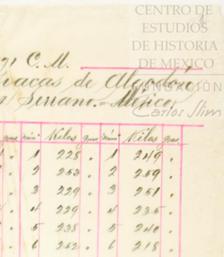 CENTRO DE
ESTUDIOS
DE HISTORIA
DE MEXICO
FUNDACIÓN
Carlos Slim
C. M.
pacas de Algodón
Serrano. México
Kilos Kilos
1 228 " 1 249 "
2 253 " 2 259 "
3 229 " 3 251 "
4 229 " 4 235 "
5 238 " 5 240 "
6 252 " 6 218 "